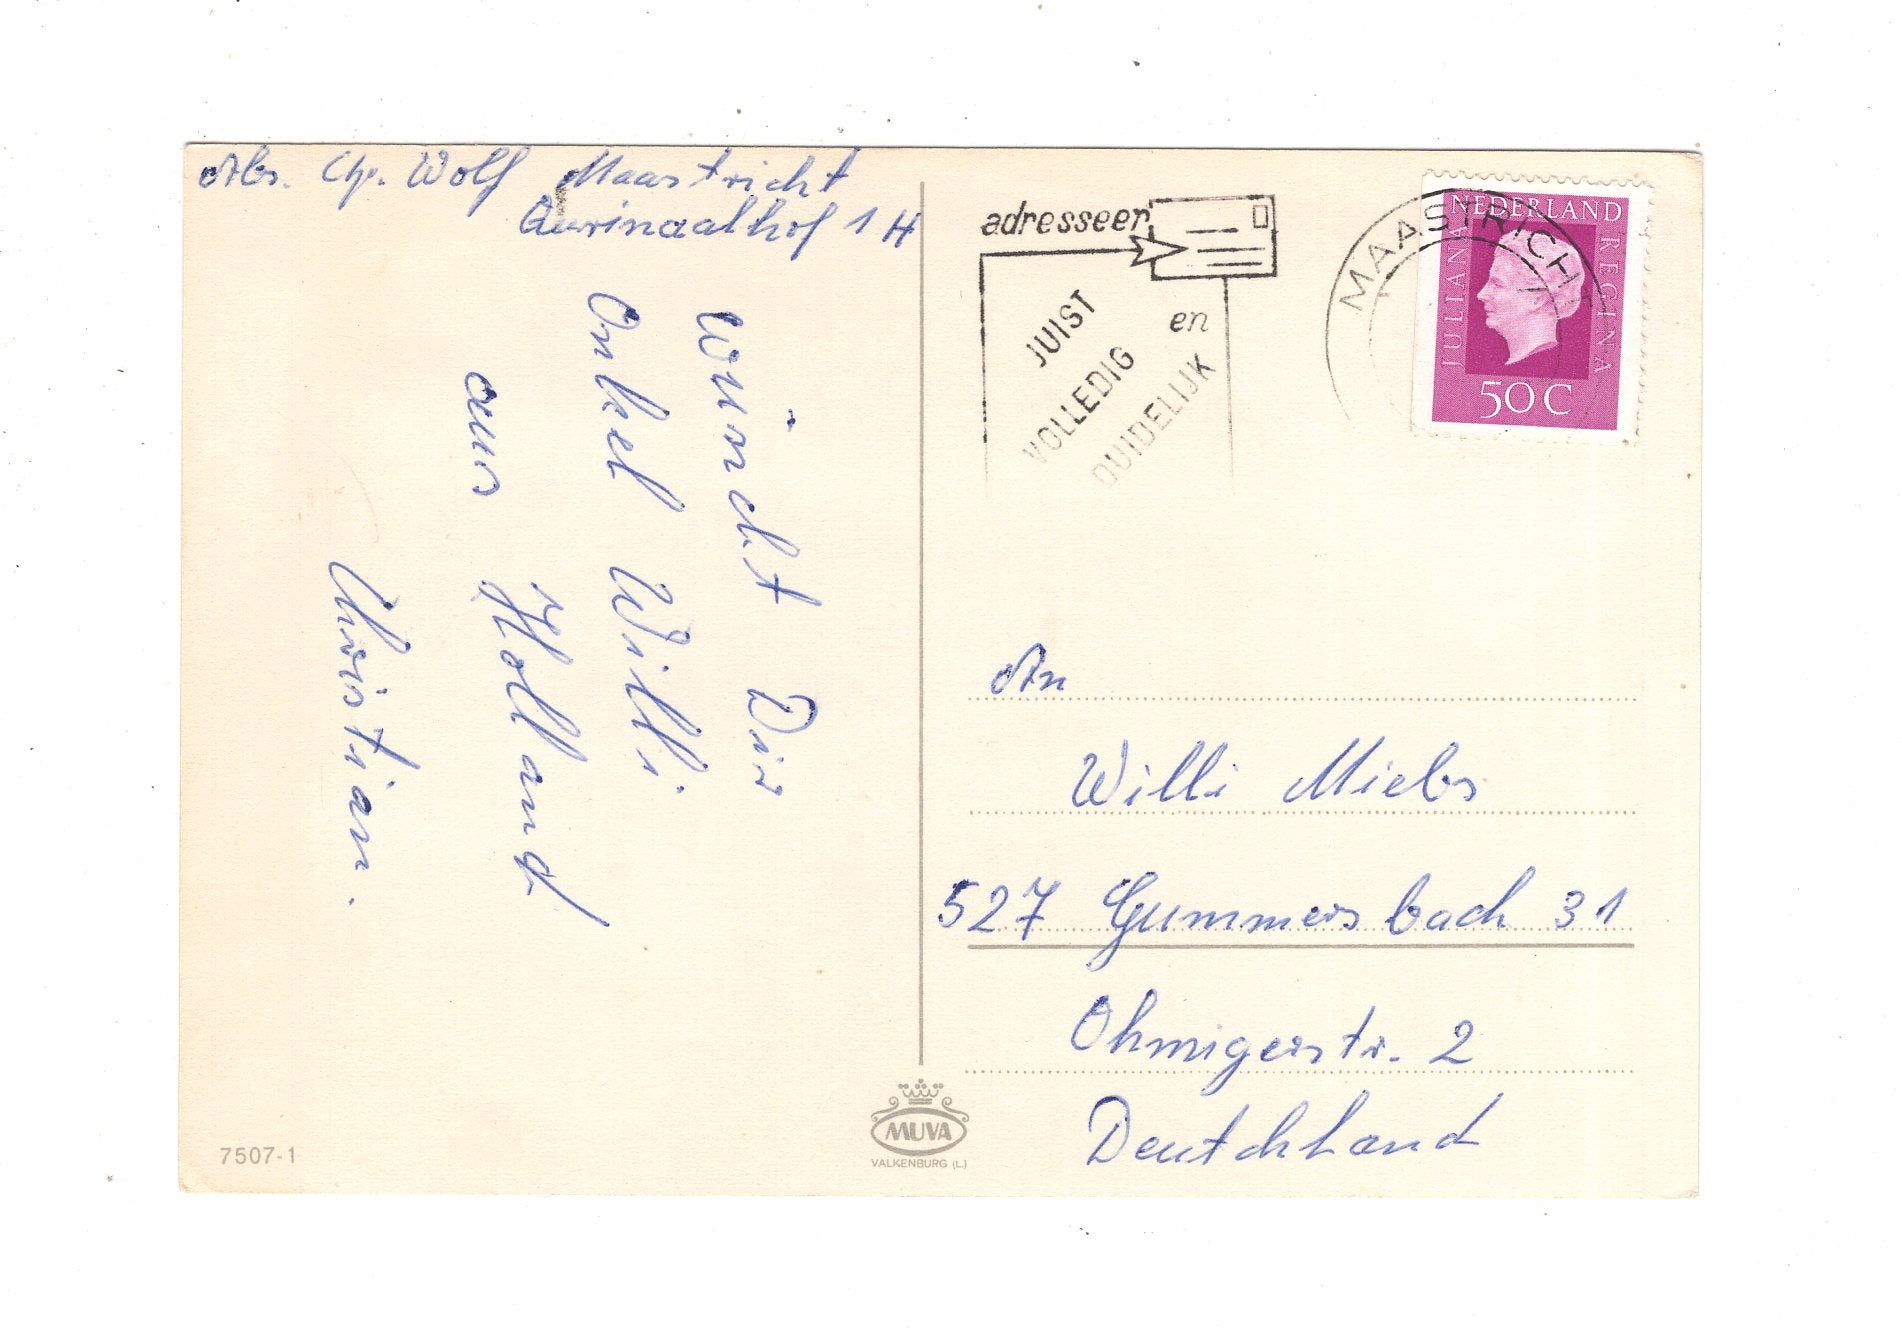 Abs. Chr. Wolf Maastricht
Qurinaalhof 1 H
wünscht Dir
Onkel Willi
aus Holland
Christian.
adresseer
JUIST
VOLLEDIG
en
DUIDELIJK
MAASTRICHT
NEDERLAND
JULIANA
REGINA
50 C
An
Willi Miebs
527 Gummersbach 31
Ohmigerstr. 2
Deutchland
MUVA
VALKENBURG (L.)
7507-1